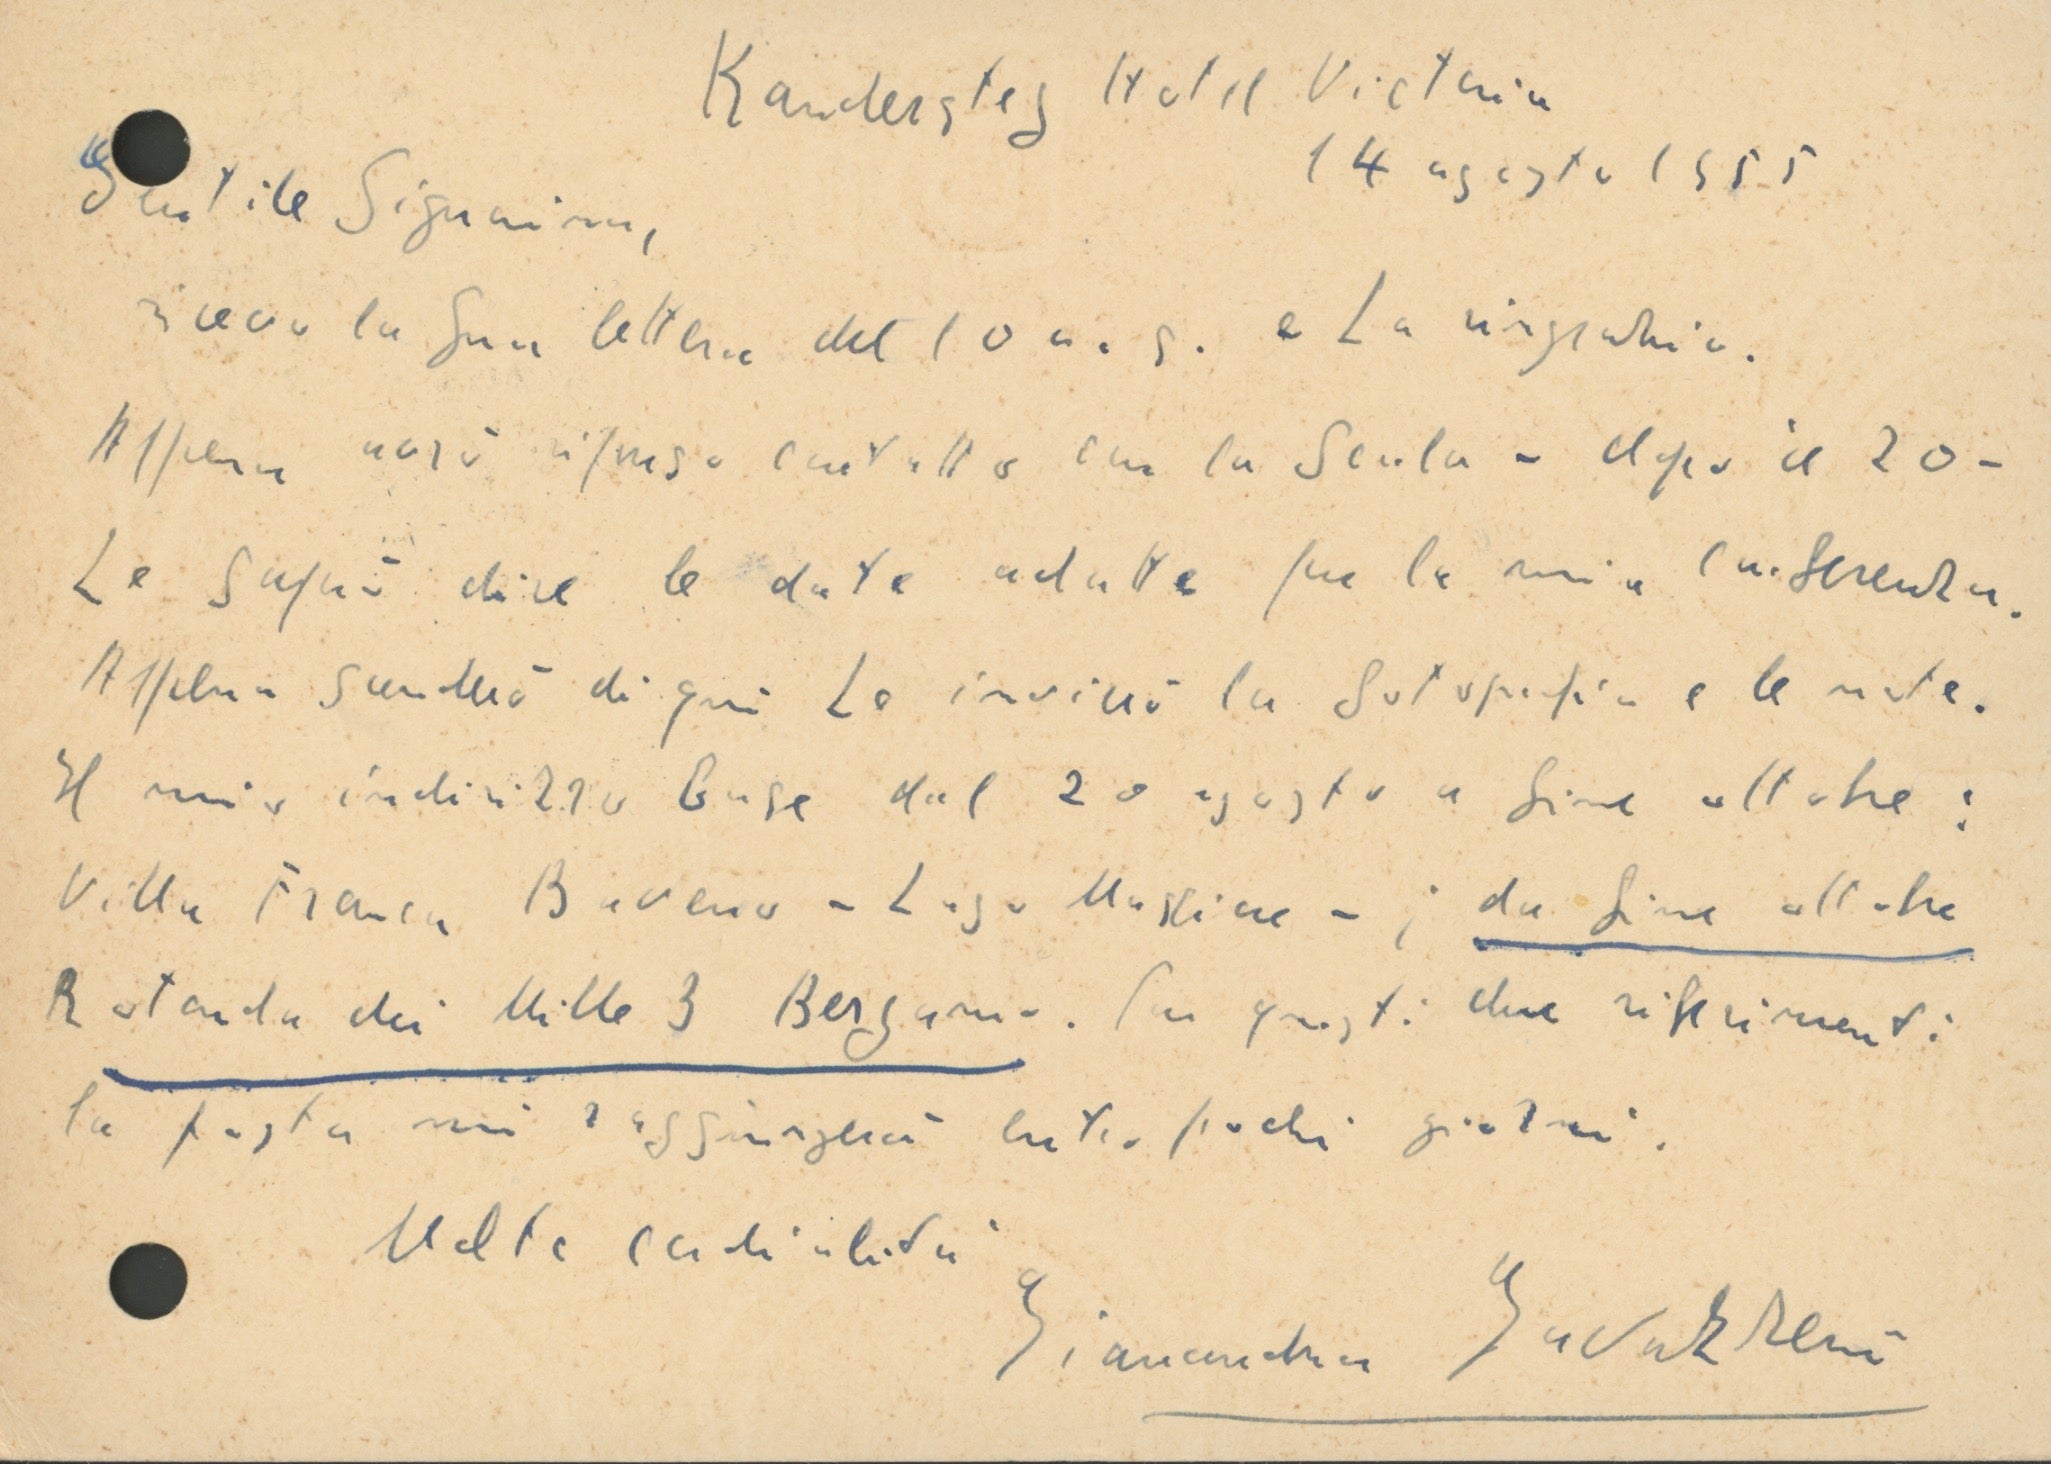 Kandersteg Hotel Victoria
14 agosto 1955
Gentile Signorina,
ricevo la Sua lettera del 10 a. s. e La ringrazio.
Appena avrò ripreso contatto con la Scala - dopo il 20 -
Le saprò dire le date adatte per la mia conferenza.
Appena scenderò di qui Le invierò la fotografia e le note.
Il mio indirizzo base dal 20 agosto a fine ottobre:
Villa Franca Baveno - Lago Maggiore - ; da fine ottobre
Rotonda dei Mille 3 Bergamo. Con questi due riferimenti
la posta mi raggiungerà entro pochi giorni.
Molta cordialità
Gianandrea Gavazzeni